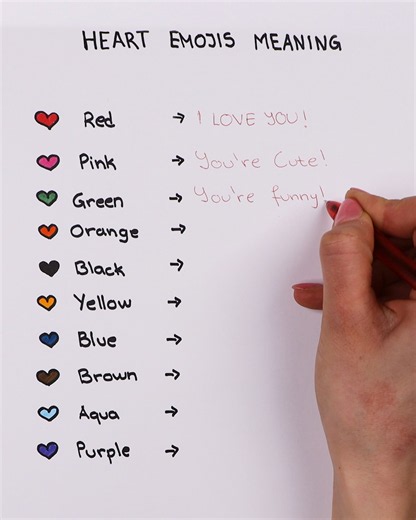 HEART EMOJIS MEANING
Red → I LOVE YOU!
Pink → You're Cute!
Green → You're funny!
Orange →
Black →
Yellow →
Blue →
Brown →
Aqua →
Purple →